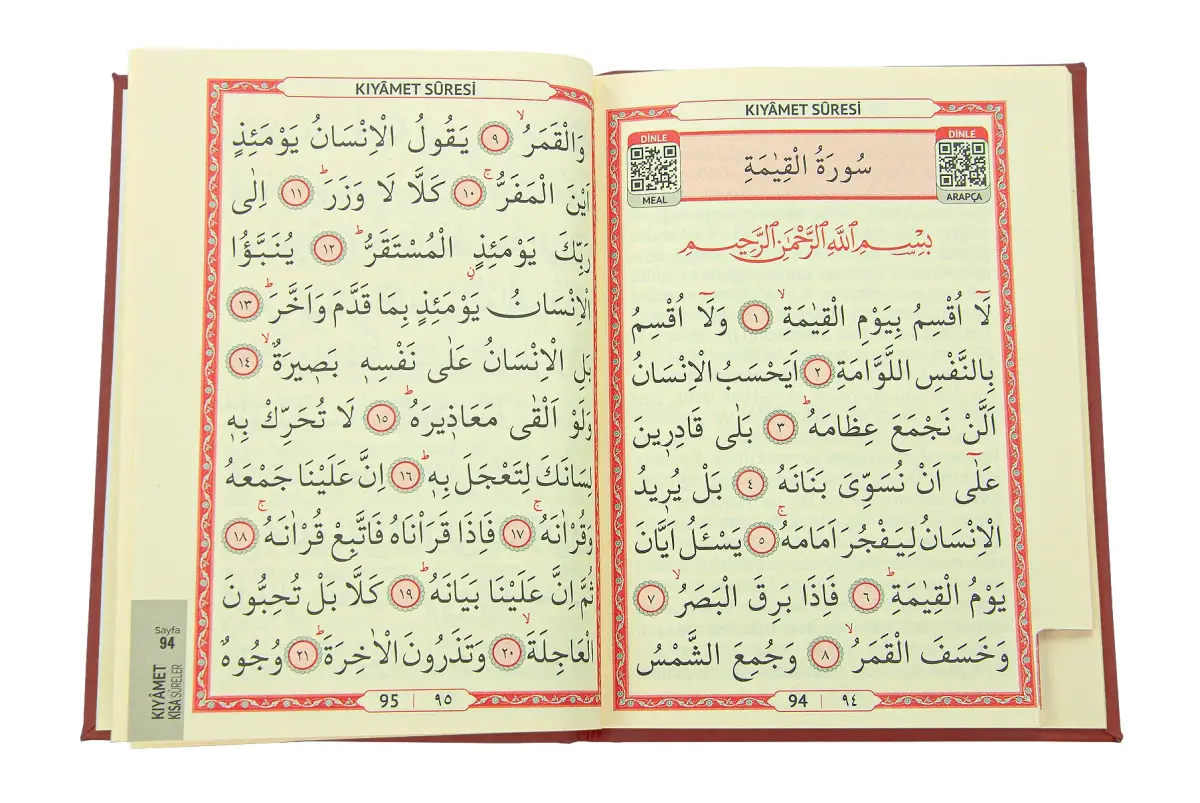 KIYÂMET SÛRESİ
DİNLE
MEAL
سُورَةُ الْقِيٰمَةِ
DİNLE
ARAPÇA
بِسْمِ اللّٰهِ الرَّحْمٰنِ الرَّحِيمِ
لَٓا اُقْسِمُ بِيَوْمِ الْقِيٰمَةِۙ ﴿١﴾ وَلَٓا اُقْسِمُ
بِالنَّفْسِ اللَّوَّامَةِ ﴿٢﴾ اَيَحْسَبُ الْاِنْسَانُ
اَلَّنْ نَجْمَعَ عِظَامَهُۜ ﴿٣﴾ بَلٰى قَادِرِينَ
عَلٰٓى اَنْ نُسَوِّىَ بَنَانَهُ ﴿٤﴾ بَلْ يُرِيدُ
الْاِنْسَانُ لِيَفْجُرَ اَمَامَهُۚ ﴿٥﴾ يَسْـَٔلُ اَيَّانَ
يَوْمُ الْقِيٰمَةِۜ ﴿٦﴾ فَاِذَا بَرِقَ الْبَصَرُۙ ﴿٧﴾
وَخَسَفَ الْقَمَرُۙ ﴿٨﴾ وَجُمِعَ الشَّمْسُ
94 | ٩٤
KIYÂMET SÛRESİ
وَالْقَمَرُۙ ﴿٩﴾ يَقُولُ الْاِنْسَانُ يَوْمَئِذٍ
اَيْنَ الْمَفَرُّۚ ﴿١٠﴾ كَلَّا لَا وَزَرَۜ ﴿١١﴾ اِلٰى
رَبِّكَ يَوْمَئِذٍ الْمُسْتَقَرُّۜ ﴿١٢﴾ يُنَبَّؤُا
الْاِنْسَانُ يَوْمَئِذٍ بِمَا قَدَّمَ وَاَخَّرَۜ ﴿١٣﴾
بَلِ الْاِنْسَانُ عَلٰى نَفْسِهِ بَصِيرَةٌۙ ﴿١٤﴾
وَلَوْ اَلْقٰى مَعَاذِيرَهُۜ ﴿١٥﴾ لَا تُحَرِّكْ بِهِ
لِسَانَكَ لِتَعْجَلَ بِهِۜ ﴿١٦﴾ اِنَّ عَلَيْنَا جَمْعَهُ
وَقُرْاٰنَهُۚ ﴿١٧﴾ فَاِذَا قَرَاْنَاهُ فَاتَّبِعْ قُرْاٰنَهُۚ ﴿١٨﴾
ثُمَّ اِنَّ عَلَيْنَا بَيَانَهُۜ ﴿١٩﴾ كَلَّا بَلْ تُحِبُّونَ
الْعَاجِلَةَۙ ﴿٢٠﴾ وَتَذَرُونَ الْاٰخِرَةَۜ ﴿٢١﴾ وُجُوهٌ
95 | ٩٥
Sayfa
94
KIYÂMET
KISA SÛRELER